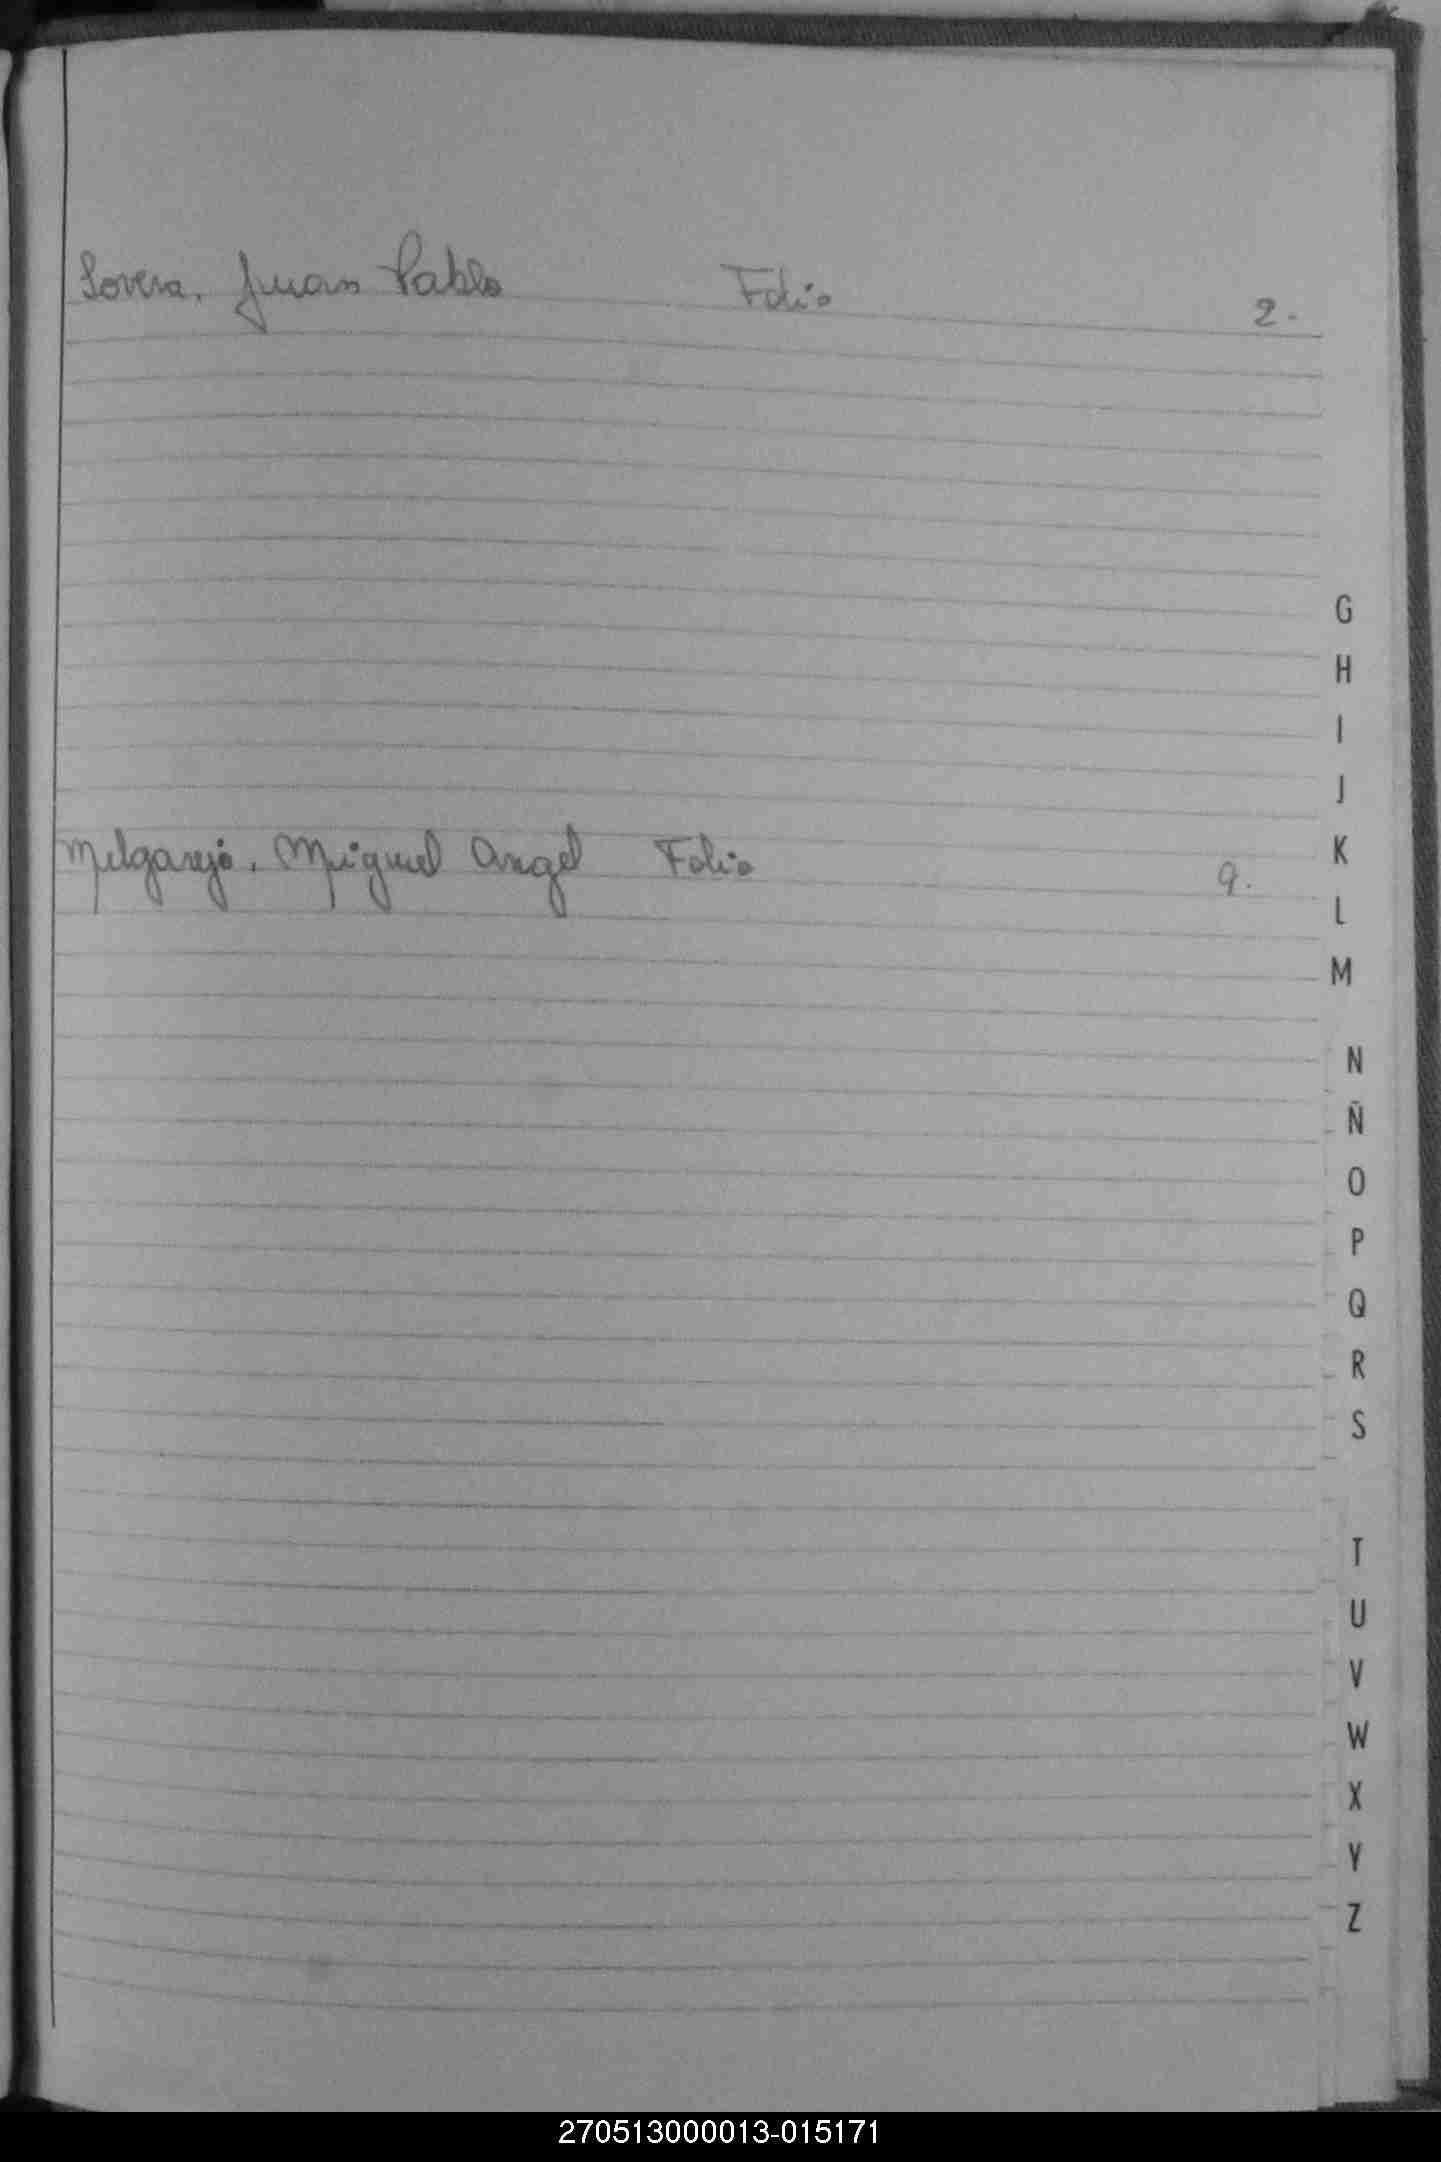 Lovera, Juan Pablo Folio 2.
Melgarejo, Miguel Angel Folio 9.
G
H
I
J
K
L
M
N
Ñ
O
P
Q
R
S
T
U
V
W
X
Y
Z
270513000013-015171